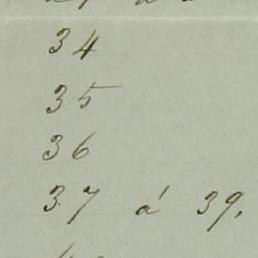 34
35
36
37 á 39,